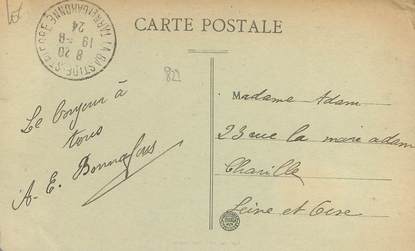 CARTE POSTALE
8 20
19 -8
24
822
Le bonjour à
tous
A-E. Bonnafous
Madame Adam
23 rue la mare adam
Chaville
Seine et Oise